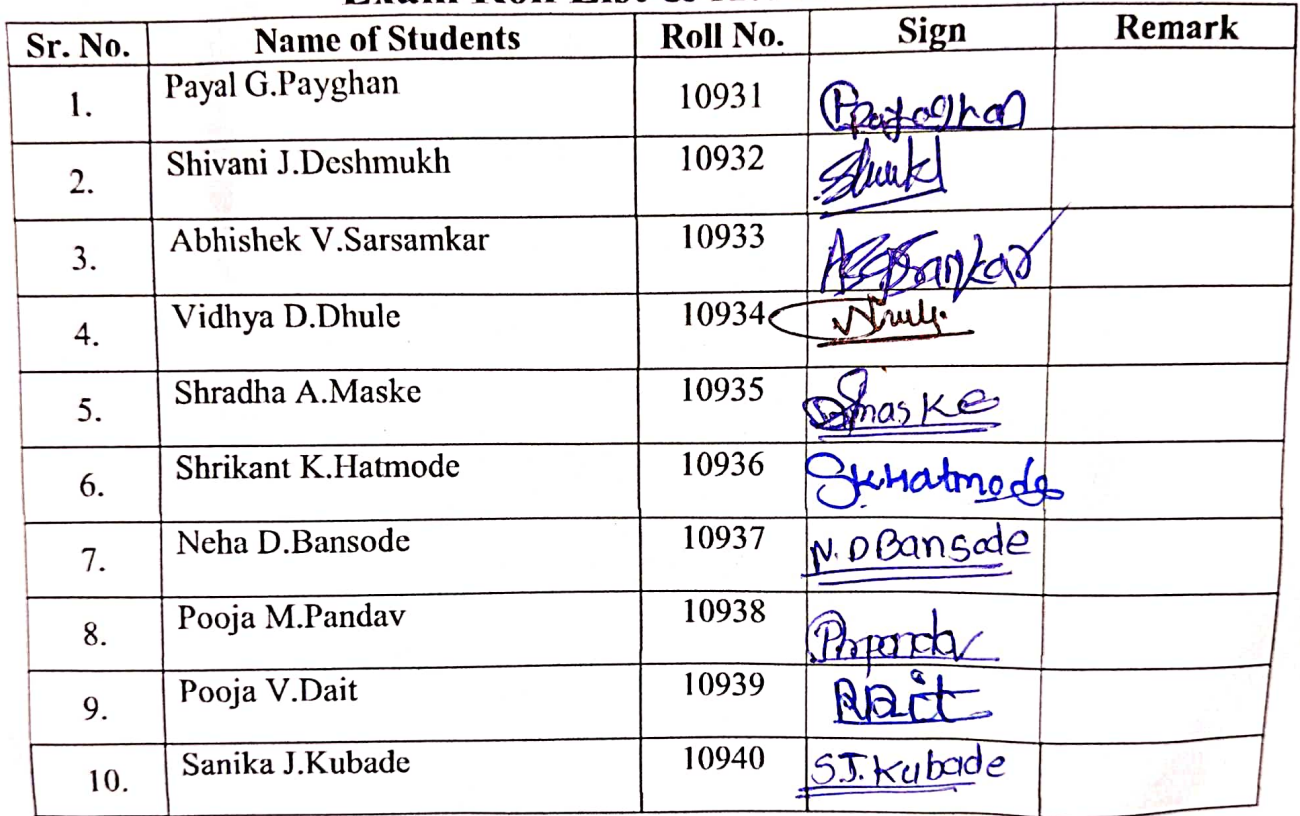 Exam Roll List &
Sr. No. Name of Students Roll No. Sign Remark
1. Payal G.Payghan 10931 Ppayaghan
2. Shivani J.Deshmukh 10932
3. Abhishek V.Sarsamkar 10933
4. Vidhya D.Dhule 10934
5. Shradha A.Maske 10935 Smaske
6. Shrikant K.Hatmode 10936 SKHatmode
7. Neha D.Bansode 10937 N.D Bansode
8. Pooja M.Pandav 10938
9. Pooja V.Dait 10939
10. Sanika J.Kubade 10940 S.J.Kubade